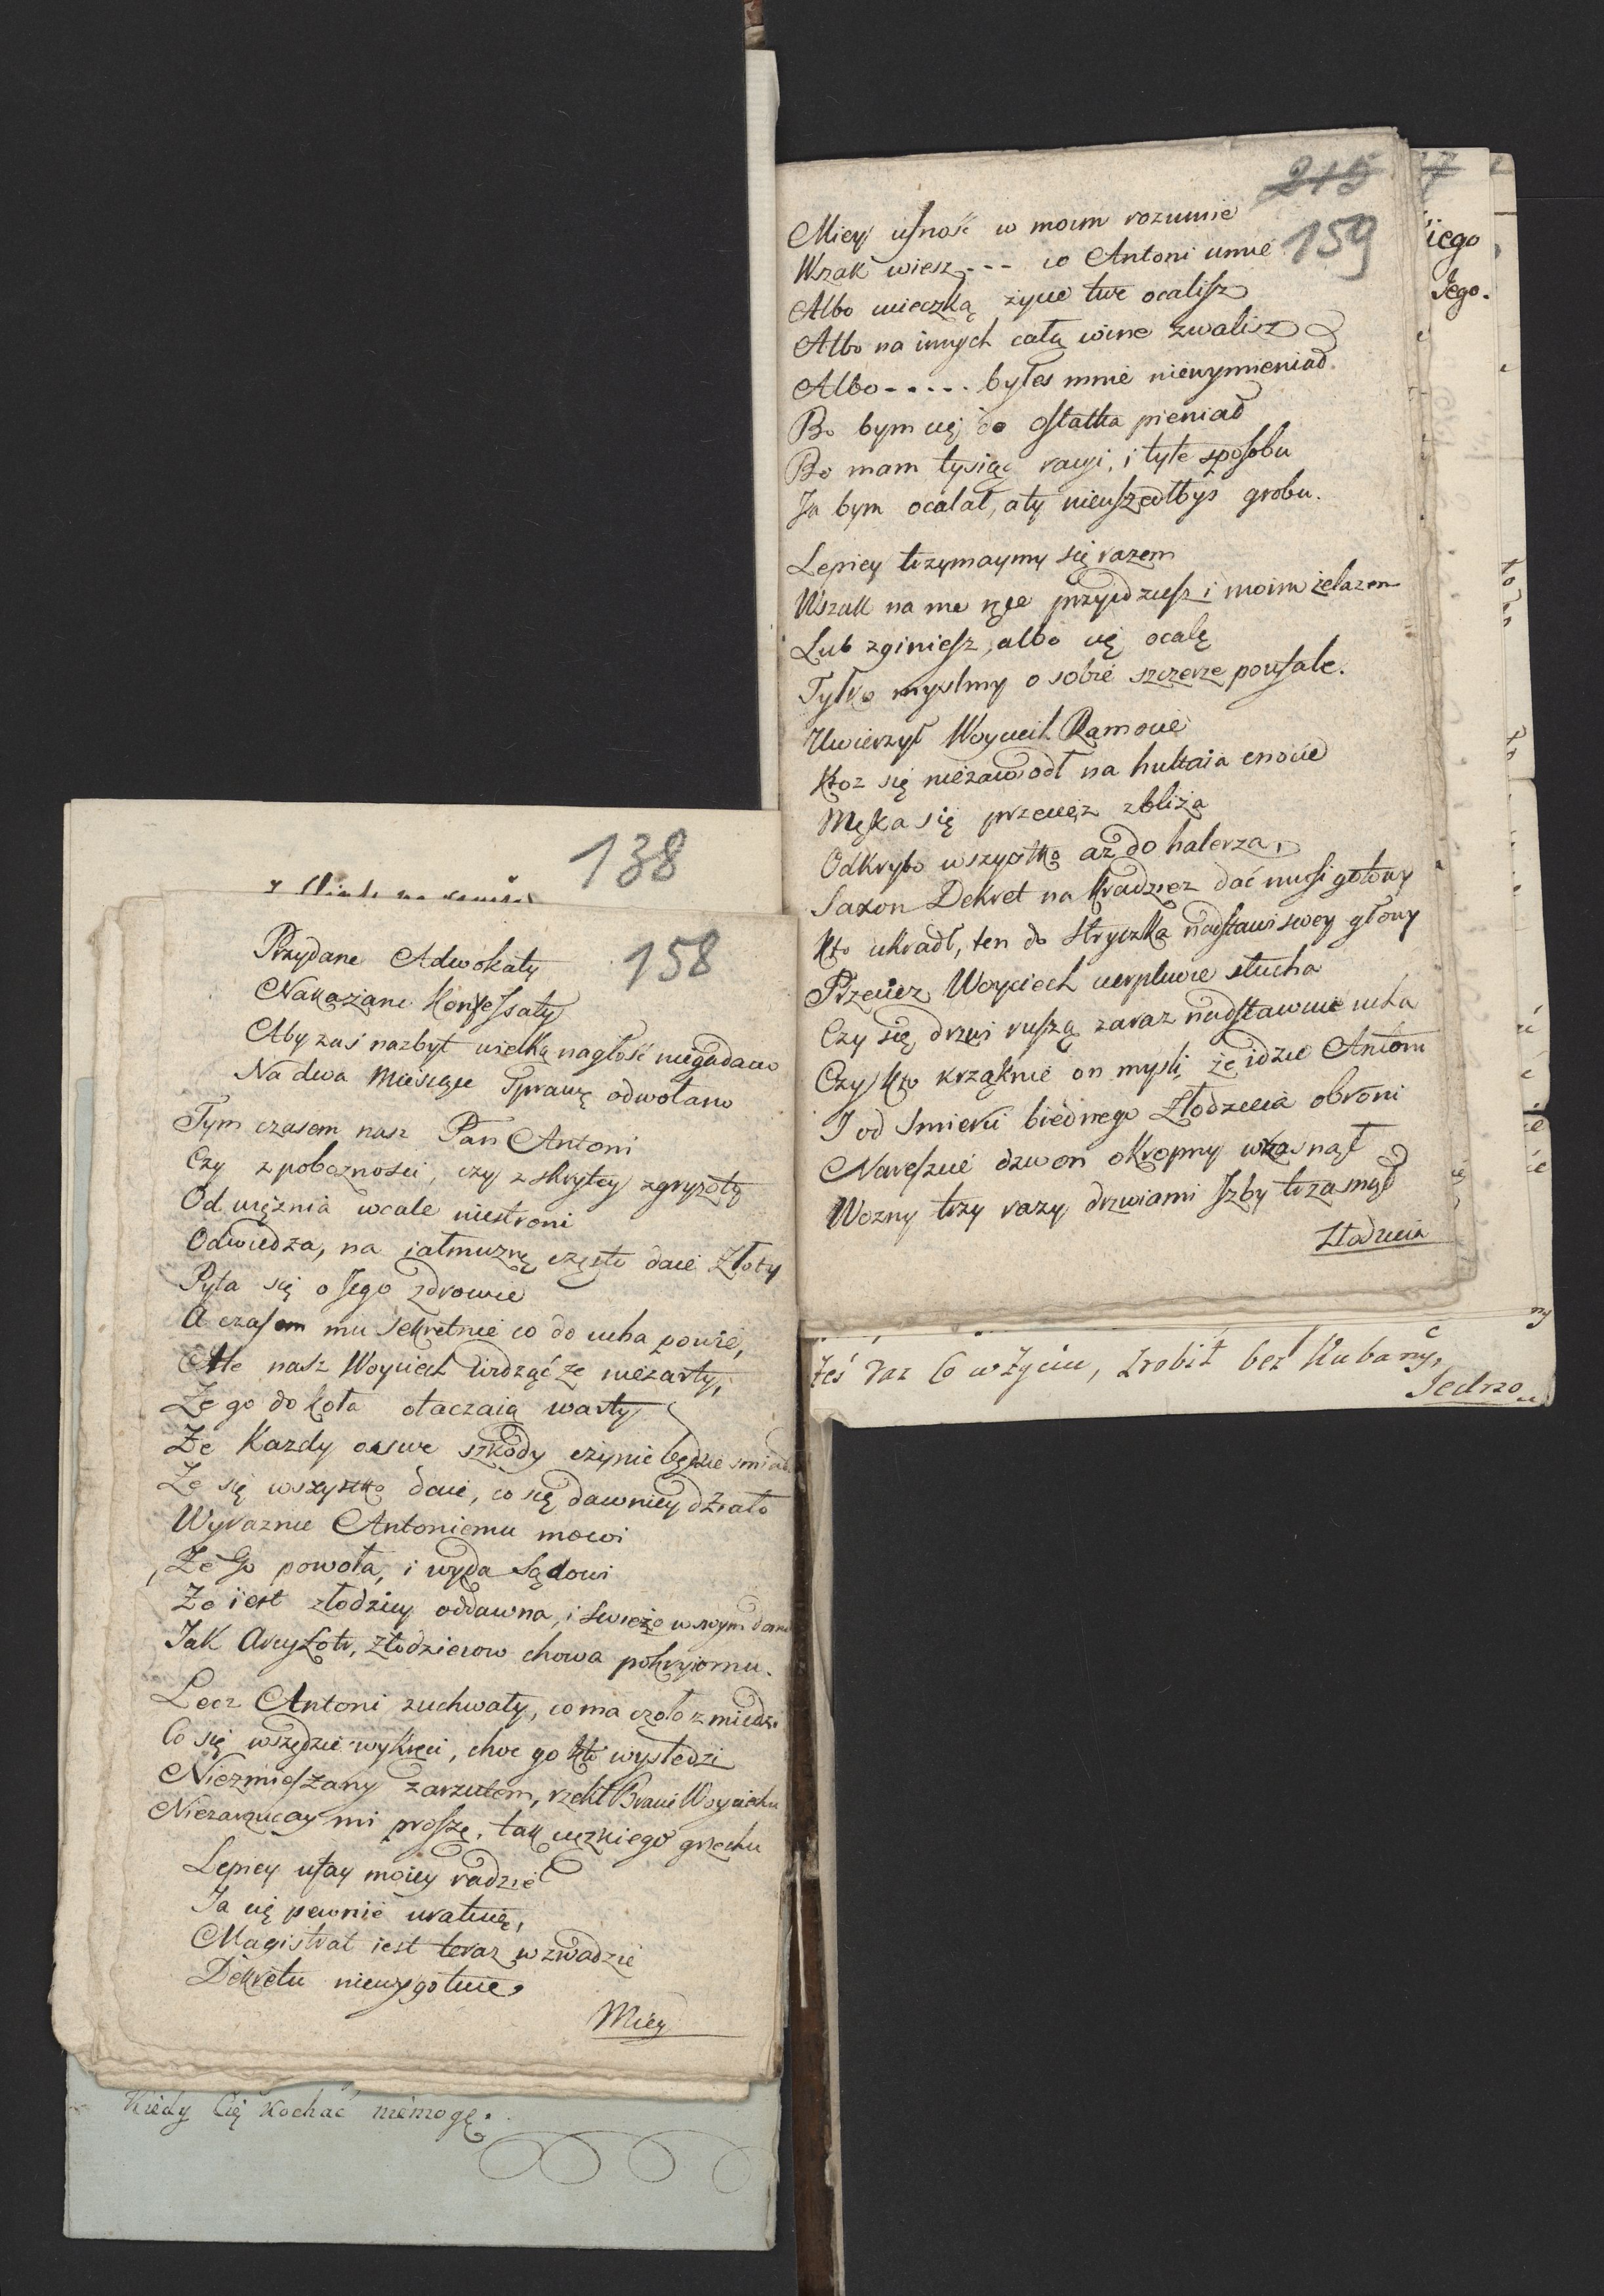 138
158
Przydane Adwokaty
Nakazane Konfessaty
Aby zas nazbyt wielką nagłość niegadano
Na dwa Miesiące Sprawę odwołano
Tym czasem nasz Pan Antoni
Czy z pobożności, czy z skrytey zgryzoty
Od więznia wcale niestroni
Odwiedza, na iałmuznę często daie Złoty
Pyta się o Jego zdrowie
A czasem mu Sekretnie co do ucha powie,
Ale nasz Woyciech widząc że nieżarty,
Ze go do koła otaczaią warty
Ze Kazdy o swe szkody czynić będzie smiał
Ze się wszystko daie, co się dawniey działo
Wyraznie Antoniemu mowi
Ze Go powoła, i wyda Sądowi
Ze iest złodziey oddawna, i swieżo w swym domu
Jak Arcyłotr, złodzieiow chowa pokryiomu.
Lecz Antoni zuchwały, co ma czoło z miedzi
Co się wszędzie wykręci, choc go kto wysledzi
Niezmieszany zarzutem, rzekł Bracie Woyciechu
Niezarzucay mi proszę, tak ciezkiego grzechu
Lepiey ufay moiey radzie
Ja cię pewnie uratuię,
Magistrat iest teraz w zwadzie
Dekretu niewygotuie,
Miey
Kiedy Cię kochać niemogę.
215
159
Miey ufność w moim rozumie
Wszak wiesz --- co Antoni umie
Albo ucieczką życie twe ocalisz
Albo na innych całą wine zwalisz
Albo ----- byłes mnie niewymieniał.
Bo bym cię do ostatka pieniał
Bo mam tysiąc racyi, i tyle sposobu
Ja bym ocalał, a ty nieuszedłbys grobu.
Lepiey trzymaymy się razem
Wszak na me ręce przyidziesz i moim żelazem
Lub zginiesz, albo cię ocalę
Tylko myslmy o sobie szczerze poufale.
Uwierzył Woyciech Ramocie
Ktoz się niezawiodł na hultaia cnocie
Męka się przeciez zbliża
Odkryto wszystko aż do halerza,
Saxon Dekret na kradziez dać musi gotowy
Kto ukradł, ten do stryczka nadstawi swey głowy
Przeciez Woyciech cierpliwie słucha
Czy się drzwi ruszą zaraz nadstawia ucha
Czy kto krząknie on mysli, że idzie Antoni
I od Smierci biednego Złodzieia obroni
Nareszcie dzwon okropny wrzasnął
Wozny trzy razy drzwiami Izby trzasnął
Złodzieia
żeś raz Co w życiu, zrobił bez Kubany,
iego
Jego.